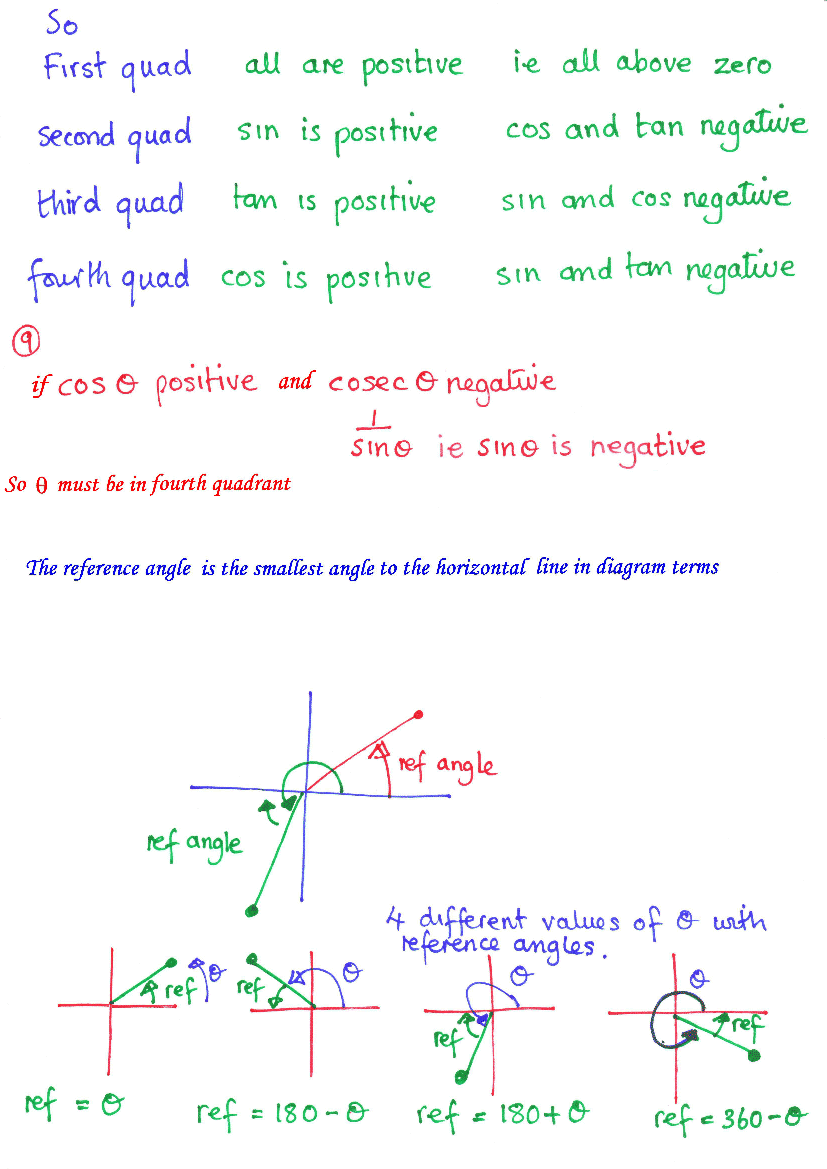 So
First quad all are positive ie all above zero
second quad sin is positive cos and tan negative
third quad tan is positive sin and cos negative
fourth quad cos is positive sin and tan negative
9
if cos θ positive and cosec θ negative
1
sinθ ie sinθ is negative
So θ must be in fourth quadrant
The reference angle is the smallest angle to the horizontal line in diagram terms
ref angle
ref angle
4 different values of θ with
reference angles.
ref θ
ref θ
ref θ
ref θ
ref = θ
ref = 180 - θ
ref = 180 + θ
ref = 360 - θ